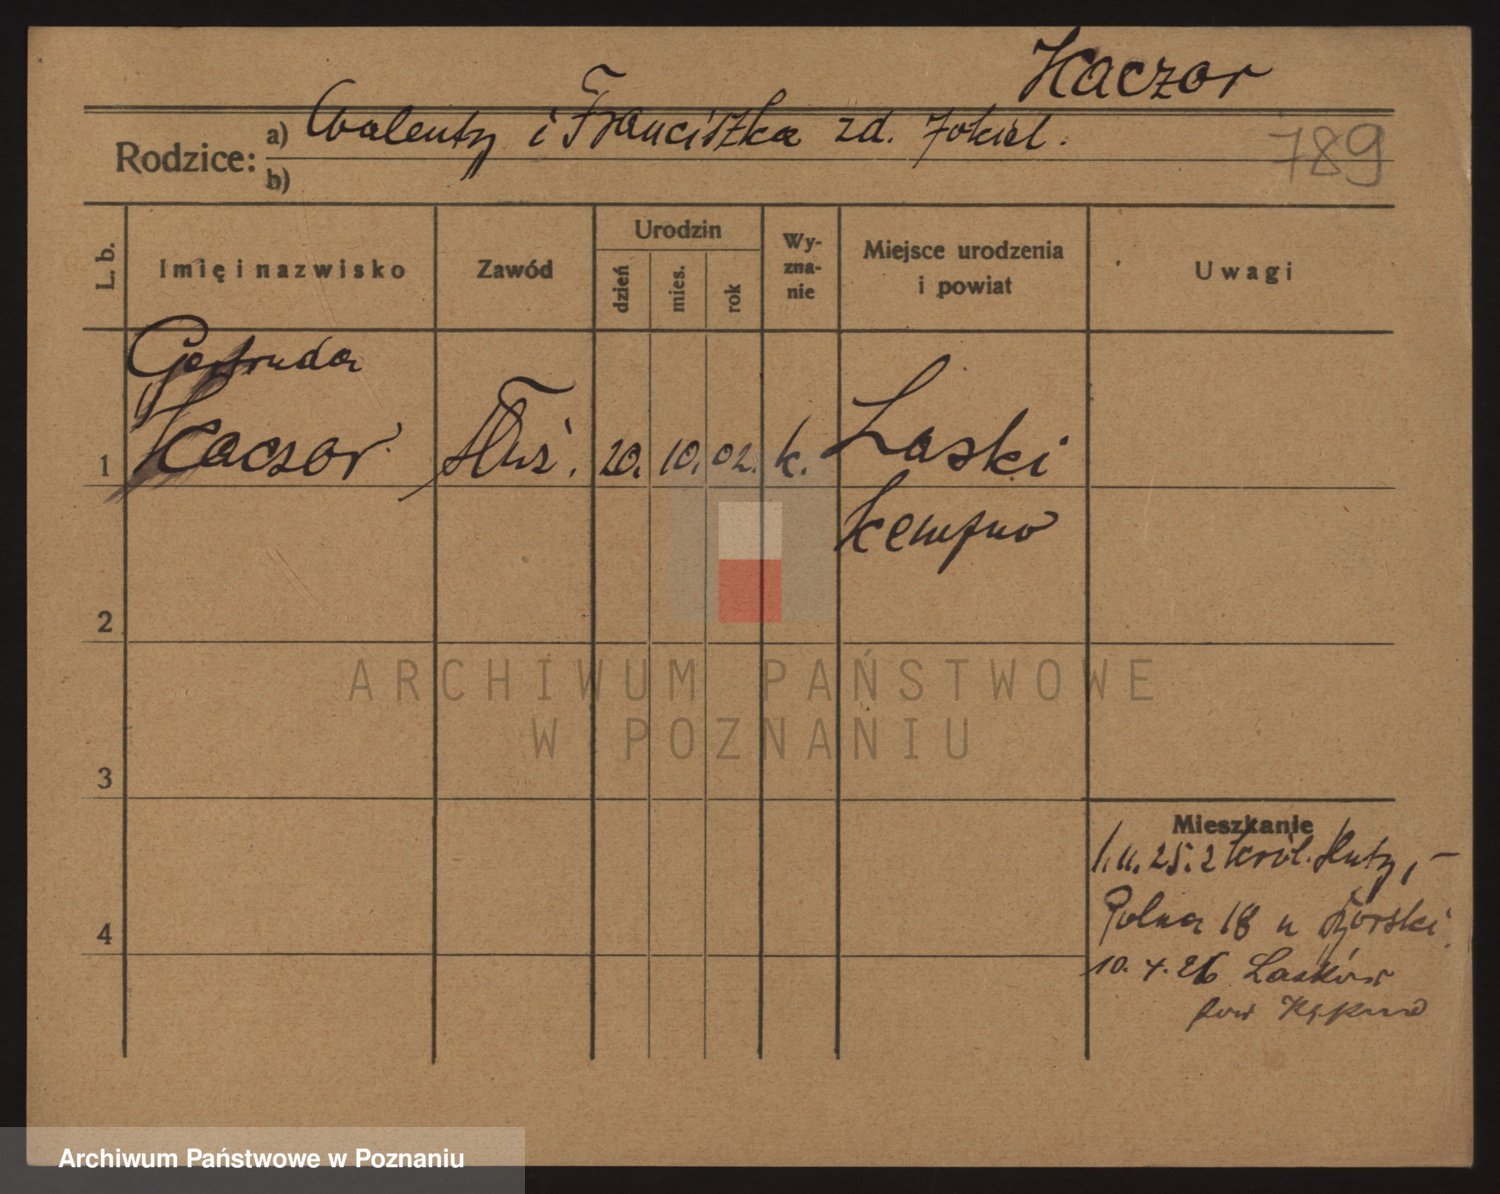 Kaczor
Rodzice:
a) Walenty i Franciszka zd. Jokiel.
b)
789
L. b.
Imię i nazwisko
Zawód
Urodzin
dzień
mies.
rok
Wy-
zna-
nie
Miejsce urodzenia
i powiat
Uwagi
Gertruda
1 Kaczor Służ. 20. 10. 02. k. Laski
Kempno
2
3
4
Mieszkanie
1.11.25. z Król. Huty, -
Polna 18 u
10.4.26
pow Kępno
ARCHIWUM PAŃSTWOWE
W POZNANIU
Archiwum Państwowe w Poznaniu